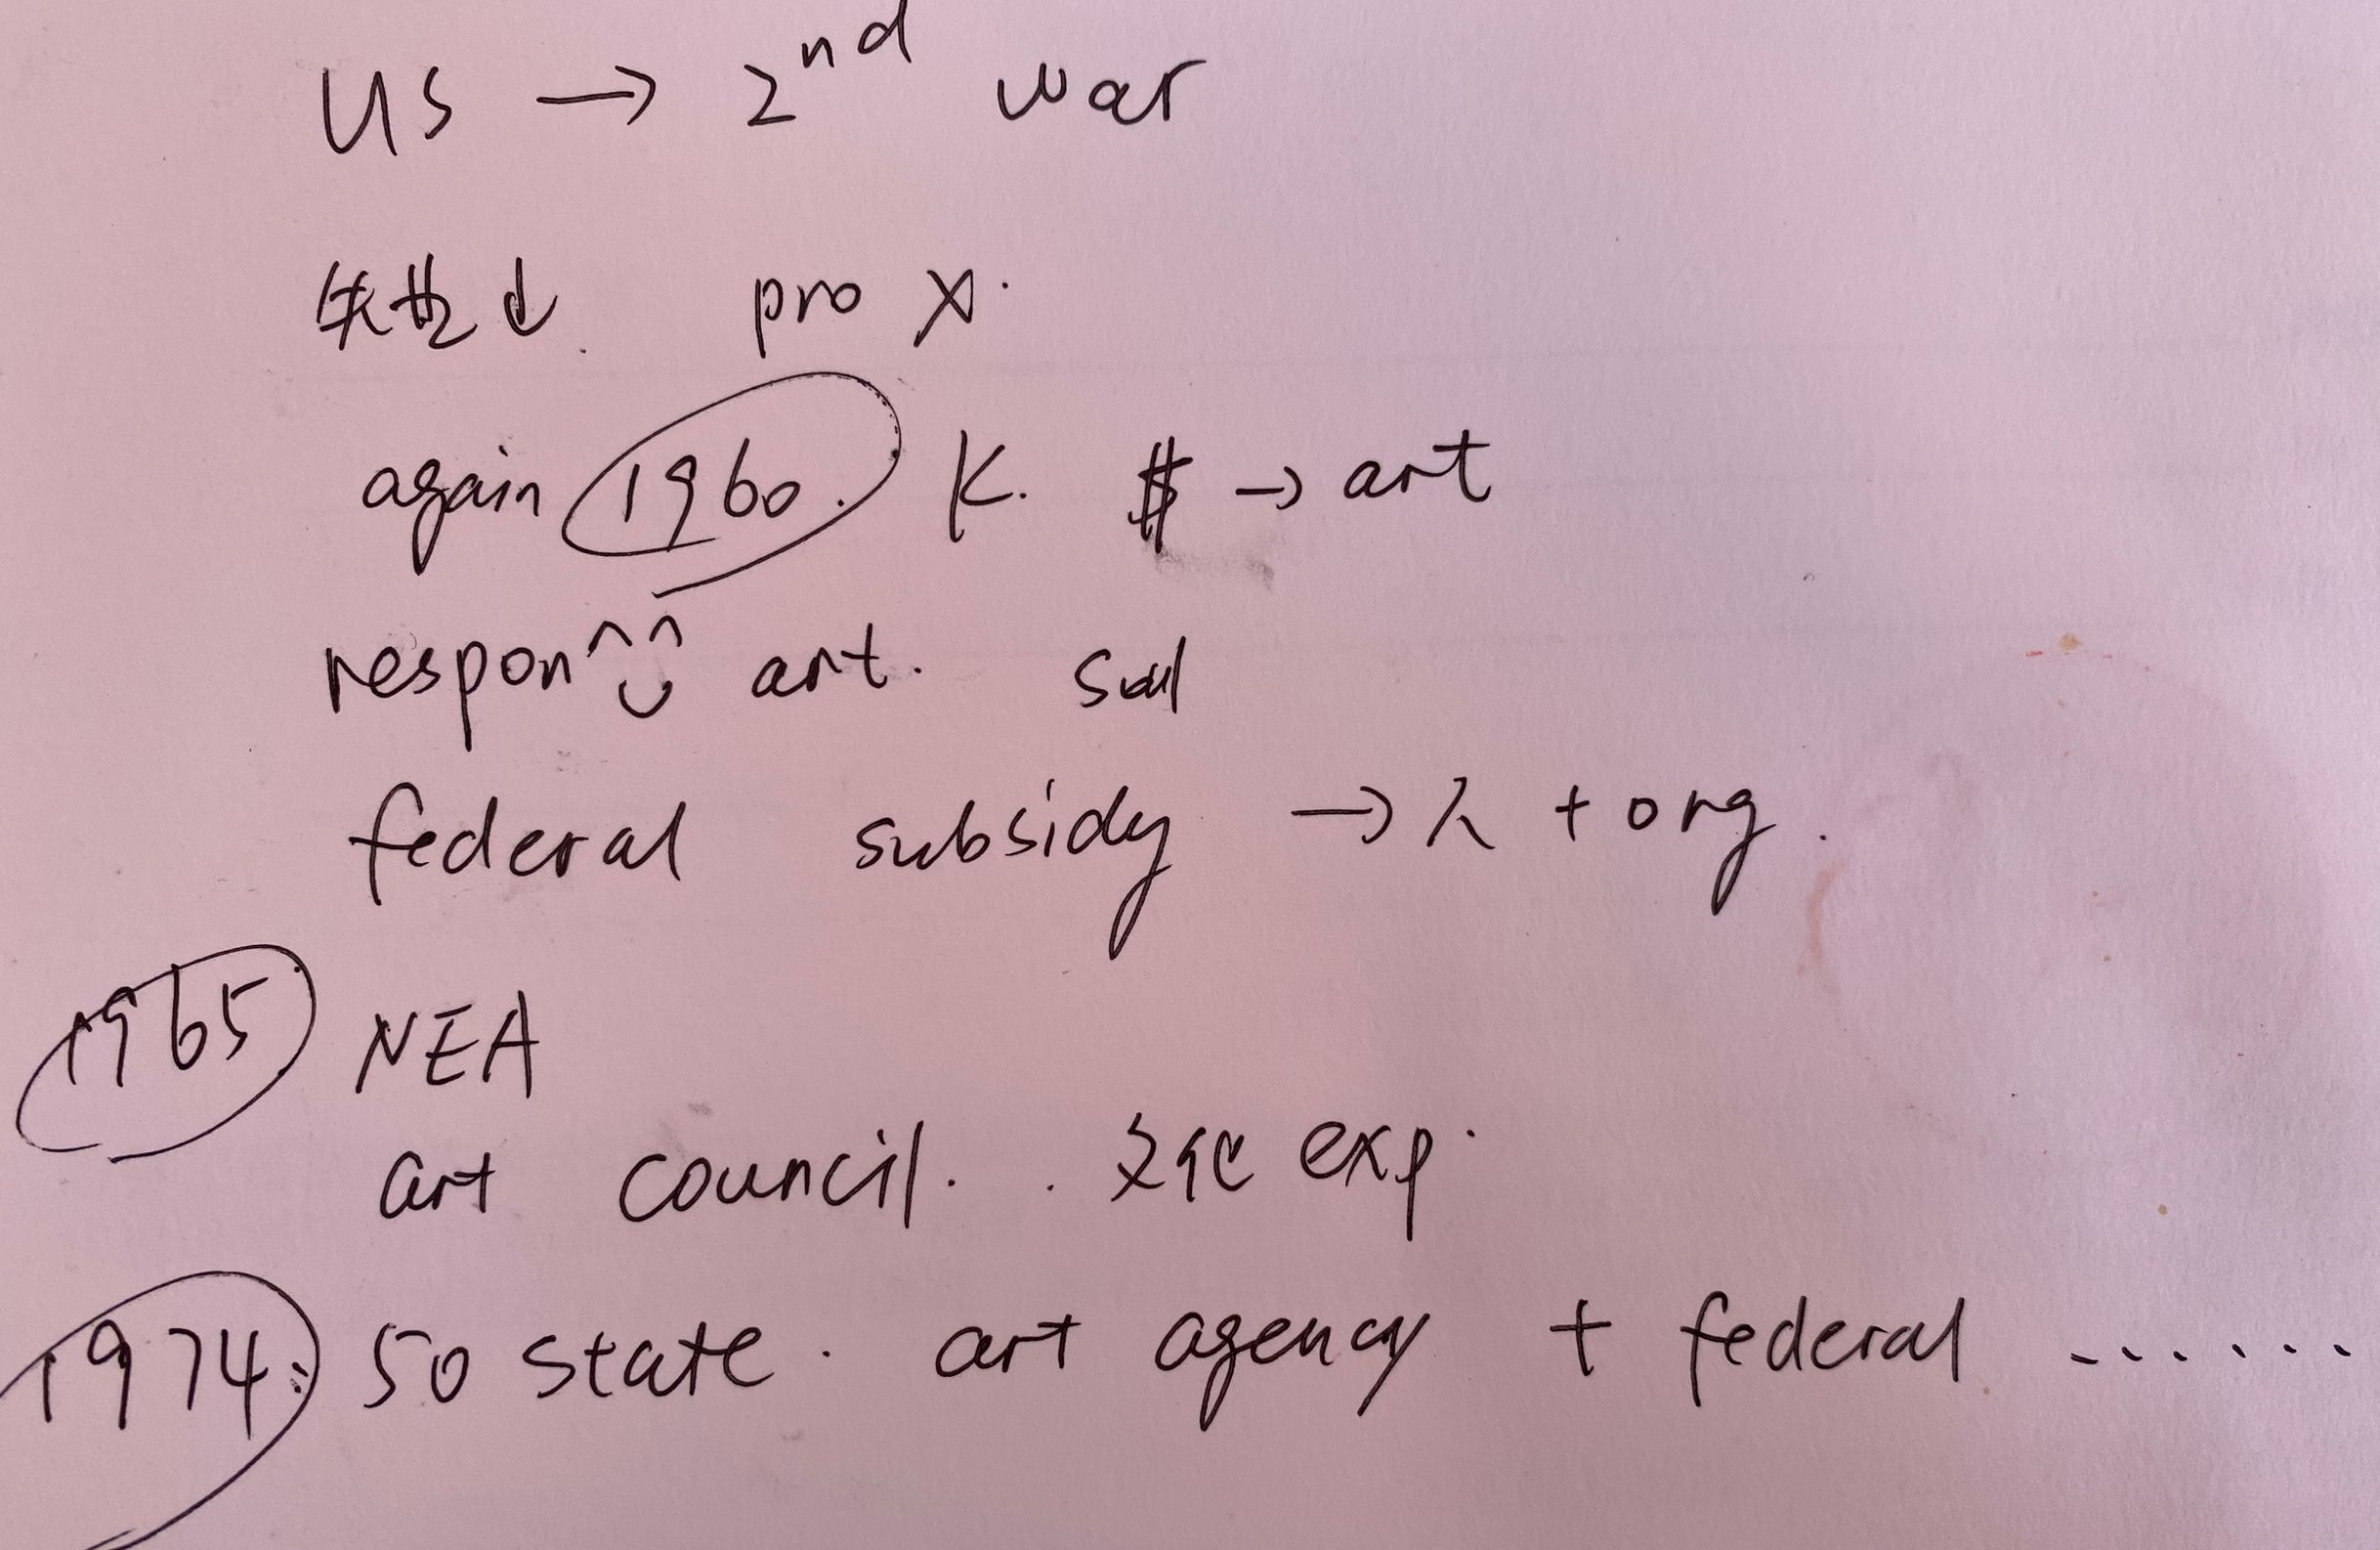 US → 2nd war
失业↓. pro X.
again 1960. K. $ → art
respon art. soul
federal subsidy → 人 + org.
1965 NEA
art council. . 文化 exp.
1974. 50 state. art agency + federal ......